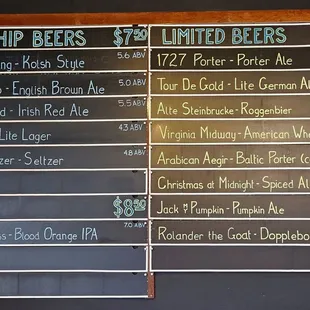 HIP BEERS $7.50
ng - Kolsh Style 5.6 ABV
o - English Brown Ale 5.0 ABV
d - Irish Red Ale 5.5 ABV
Lite Lager 4.3 ABV
zer - Seltzer 4.8 ABV
$8.50
ss - Blood Orange IPA 7.0 ABV
LIMITED BEERS
1727 Porter - Porter Ale
Tour De Gold - Lite German A
Alte Steinbrucke - Roggenbier
Virginia Midway - American Whe
Arabican Aegir - Baltic Porter (c
Christmas at Midnight - Spiced Al
Jack Pumpkin - Pumpkin Ale
Rolander the Goat - Dopplebo